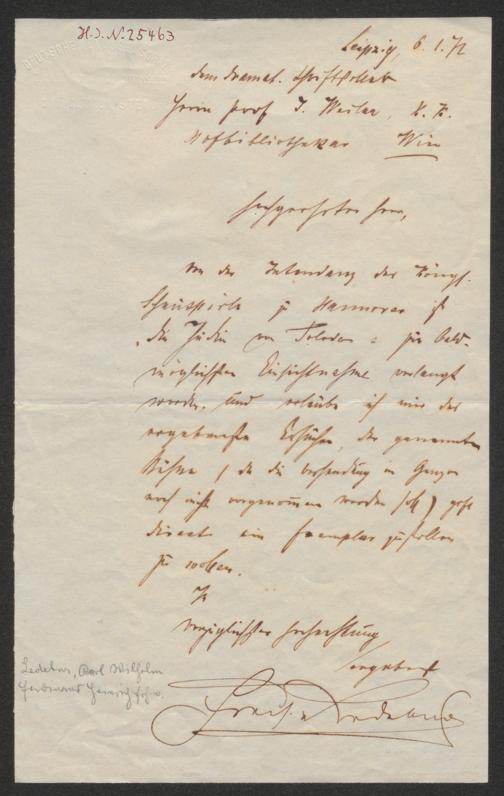 H.I.N. 25463
Leipzig, 6.1.72
dem dramat. Schriftsteller
Herrn Prof J. Weilen, K. K.
Hofbibliothekar Wien
Hochgeehrter Herr,
Von der Intendanz der Königl.
Schauspiele zu Hannover ist
"die Jüdin von Toledo" zur bald-
möglichsten Einsichtnahme verlangt
worden, und erlaube ich mir das
ergebenste Ersuchen, der genannten
Bühne (da die Versendung im Ganzen
noch nicht vorgenommen worden ist)
direct ein Exemplar zustellen
zu wollen.
Mit
vorzüglichster Hochachtung
ergebenst
v Ledebur
Ledebur, Carl Wilhelm
Ferdinand Heinrich Frh. v.